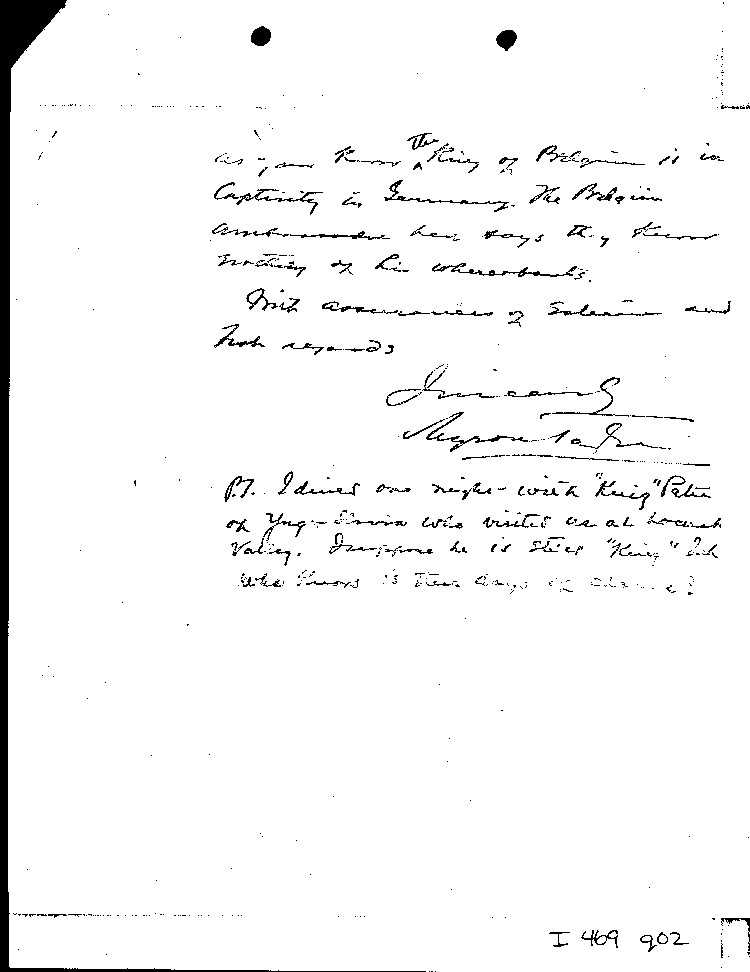 as you know The King of Belgium is in
Captivity in Germany. The Belgian
Ambassador here says they know
nothing of his whereabouts.
With assurances of Esteem and
high regards
Sincerely
Myron Taylor
P.S. I dined one night with "King" Peter
of Yugo-Slavia who visited us at Locust
Valley. I suppose he is still "King" but
who knows in these days of change?
I 469 902